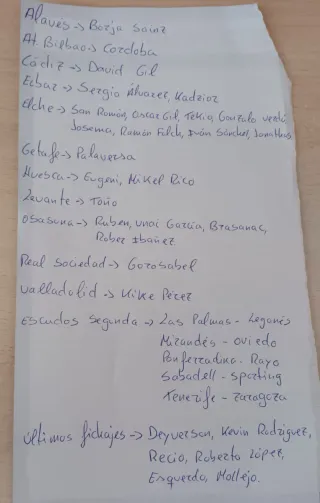 Alaves -> Borja Sainz
At. Bilbao -> Cordoba
Cádiz -> David Gil
Eibar -> Sergio Álvarez, Kadzior
Elche -> San Román, Oscar Gil, Tekio, Gonzalo Verdú
Josema, Ramón Folch, Iván Sánchez, Jonathas
Getafe -> Palaversa
Huesca -> Eugeni, Mikel Rico
Levante -> Toño
Osasuna -> Ruben, Unai García, Brasanac,
Rober Ibañez
Real Sociedad -> Gorosabel
Valladolid -> Kike Pérez
Escudos Segunda -> Las Palmas - Leganés
Mirandés - Oviedo
Ponferradina - Rayo
Sabadell - Sporting
Tenerife - Zaragoza
Ultimos fichajes -> Deyverson, Kevin Rodríguez,
Recio, Roberto López,
Esquerdo, Mollejo.